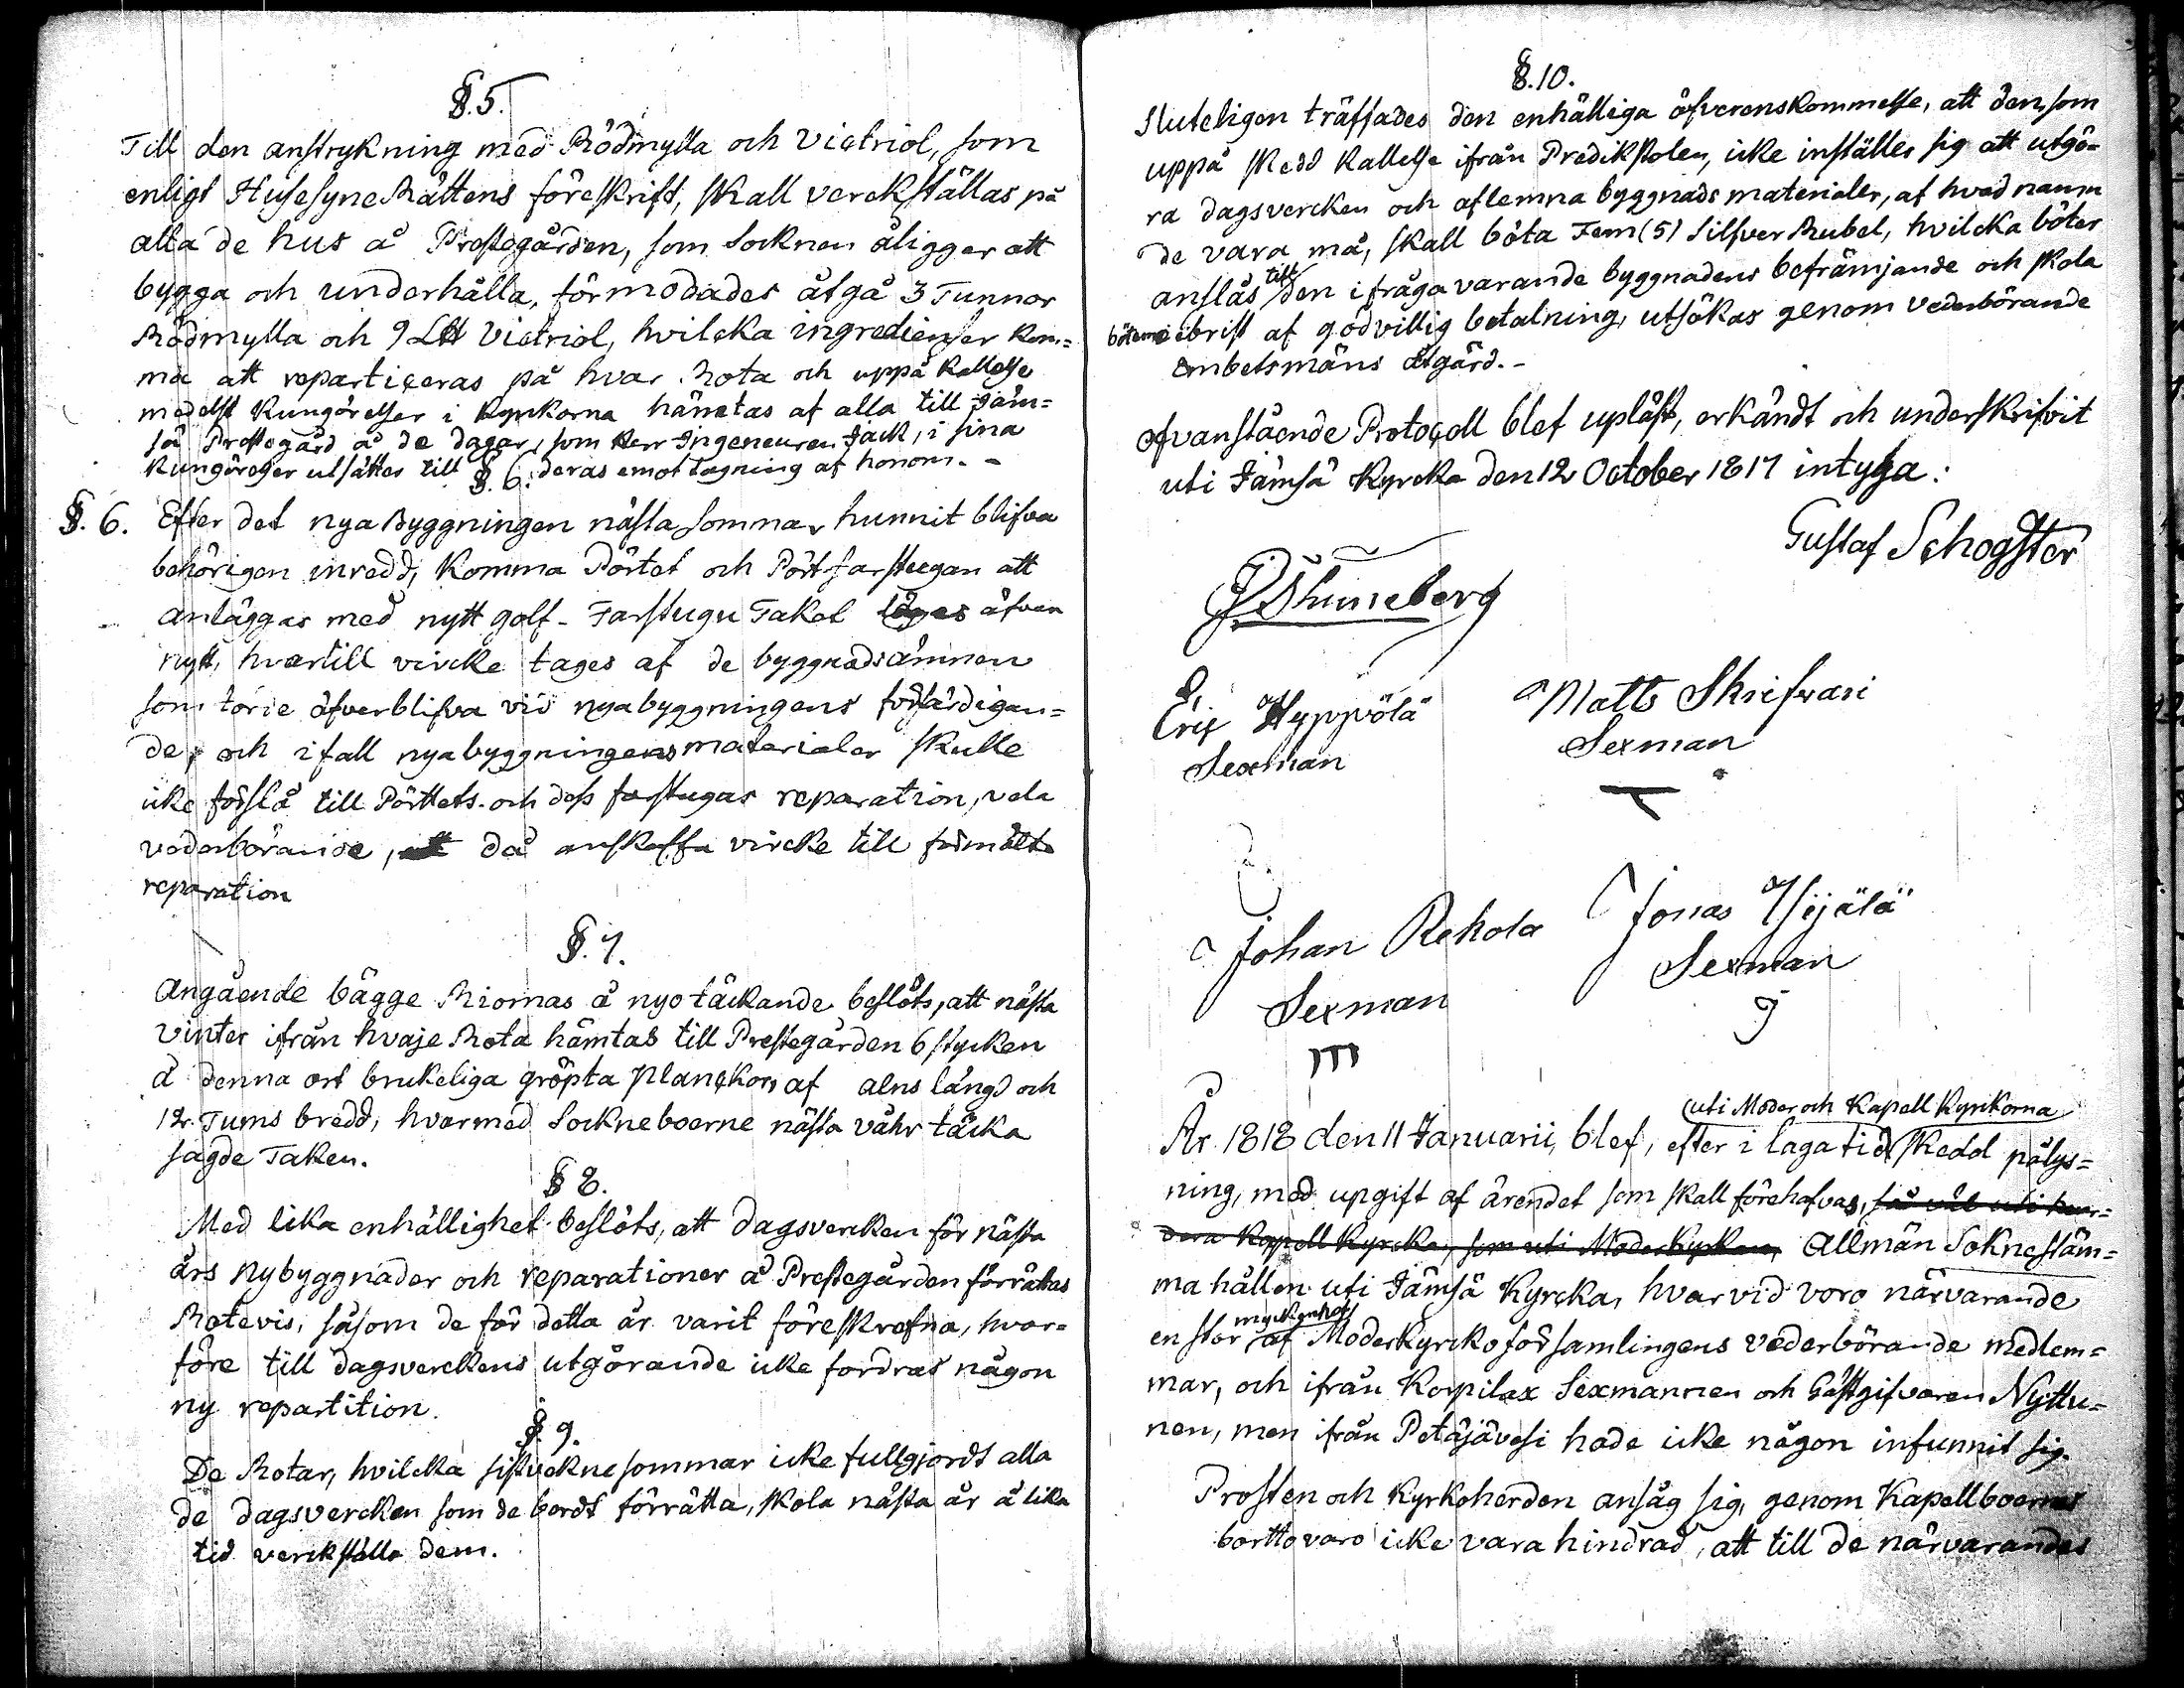 §. 5.
Till den anstrykning med Rödmylla och Victriol, som
enligt HusesyneRättens föreskrift, skall verckställas på
alla de hus å Prestegården, som Socknen åligger att
bygga och underhålla, förmodades åtgå 3 Tunnor
Rödmylla och 9 L℔ Victriol, hvilcka ingredienser kom=
ma att reparticeras på hvar Rota och uppå kallelse
medelst Kungörelser i kyrkorna hämtas af alla till Jäm=
sä Prestegård å de dagar, som Herr Ingeneuren Jack, i sina
Kungörelser utsätter till deras emottagning af honom. -
§. 6.
§. 6. Efter det nya Byggningen nästa sommar hunnit blifva
behörigen inredd, komma Pörtet och Pörtfarstugan att
anläggas med nytt golf - Farstugu Taket äfven
nytt, hvartill vircke tages af de byggnadsämnen
som torde öfverblifva vid nyabyggningens förfärdigan=
de, och ifall nyabyggningens materialer skulle
icke förslå till Pörttets och dess farstugas reparation, vela
vederbörande, att då anskaffa vircke till förmälte
reparation
§. 7.
Angående bägge Riornas å nyo täckande beslöts, att nästa
vinter ifrån hvarje Rota hämtas till Prestegården 6 stycken
å denna ort brukeliga gröpta planckor, af alns längd och
12 Tums bredd, hvarmed Sockneboerne nästa våhr täcka
sagde Taken.
§ 8.
Med lika enhällighet beslöts, att dagsvercken för nästa
års nybyggnader och reparationer å Prestegården förrättas
Rotevis, såsom de för detta år varit föreskrefna, hvar=
före till dagsverckens utgörande icke fordras någon
ny repartition.
§. 9.
De Rotar, hvilcka sistvekne sommar icke fullgjordt alla
de dagsvercken som de bordt förrätta, skola nästa år å lika
tid verckställa dem.
§. 10.
Sluteligen träffades den enhälliga öfverenskommelse, att den, som
uppå skedd kallelse ifrån Predikstolen, icke inställer sig att utgö=
ra dagsvercken och aflemna byggnads materialer, af hvad namn
de vara må, skall böta Fem (5) Silfver Rubel, hvilcka böter
anslås till den ifrågavarande byggnadens befrämjande och skola
böterne i brist af godvillig betalning, utsökas genom vederbörande
Embetsmäns åtgärd. -
Ofvanstående Protocoll blef upläst, erkändt och underskrifvit
uti Jämsä Kyrcka den 12 October 1817 intyga:
Gustaf Schogster
Erix Hyppölä
Sexman
Matts Skrifvari
Sexman
Johan Rekola
Sexman
Jonas Yijälä
Sexman
År 1818 den 11 Januarii, blef, efter i laga tid uti Moder och Kapell Kyrkorna skedd pålys=
ning, med upgift af ärendet som skall förehafvas, så väl uti
dera Kapell Kyrcka, som uti Moderkyrkan, Allmän Soknestäm=
ma hållen uti Jämsä Kyrcka, hvarvid voro närvarande
en stor myckenhet af ModerKyrckoförsamlingens vederbörande medlem=
mar, och ifrån Korpilax Sexmannen och Gästgifvaren Nyttu=
nen, men ifrån Petäjävesi hade icke någon infunnit sig.
Prosten och Kyrkoherden ansåg sig, genom Kapellboernes
bortto varo icke vara hindrad, att till de närvarandes